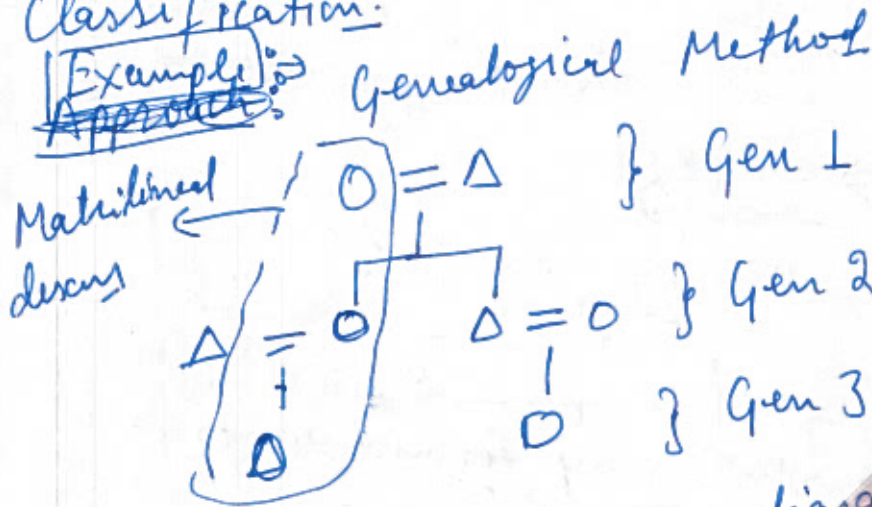 Classification:
Example:→ Genealogical Method
Approach:
Matrilineal
O = Δ } Gen 1
Δ = O Δ = O } Gen 2
Δ O } Gen 3